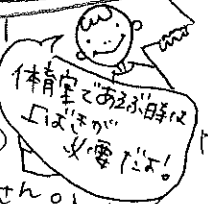 体育室であそぶ時は
上ばきが
必要だよ!
さん。